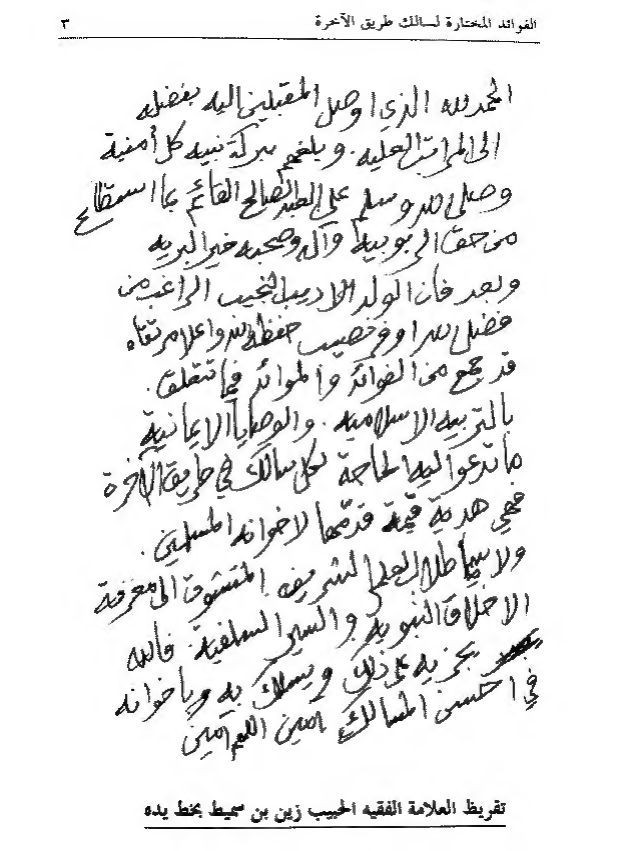 الفوائد المختارة لسالك طريق الآخرة ٣
الحمد لله الذي اوصل المقبلين اليه بفضله
الى المراتب العليه . وبلغهم ببركة نبيه كل أمنية
وصلى الله وسلم على العبد الصالح القائم بما استطاع
من حق الربوبية وآله وصحبه خير البريه
وبعد فان الولد الاديب النجيب الراغب من
فضل الله اوفر نصيب حفظه الله واعلا مرتقاه
قد جمع من الفوائد والموائد فيما تتعلق .
بالتربيه الاسلاميه . والوصايا الايمانية
ما تدعوا اليه الحاجة لكل سالك في طريق الآخرة
فهي هدية قيمة قدمها لاخوانه المسلمين .
ولا سيما طلاب العلم الشريف المتشوق الى معرفة
الاخلاق النبويه والسير السلفية . فالله
يجزيه على ذلك ويسلك به وباخوانه
في احسن المسالك امين اللهم امين
تقريظ العلامة الفقيه الحبيب زين بن سميط بخط يده